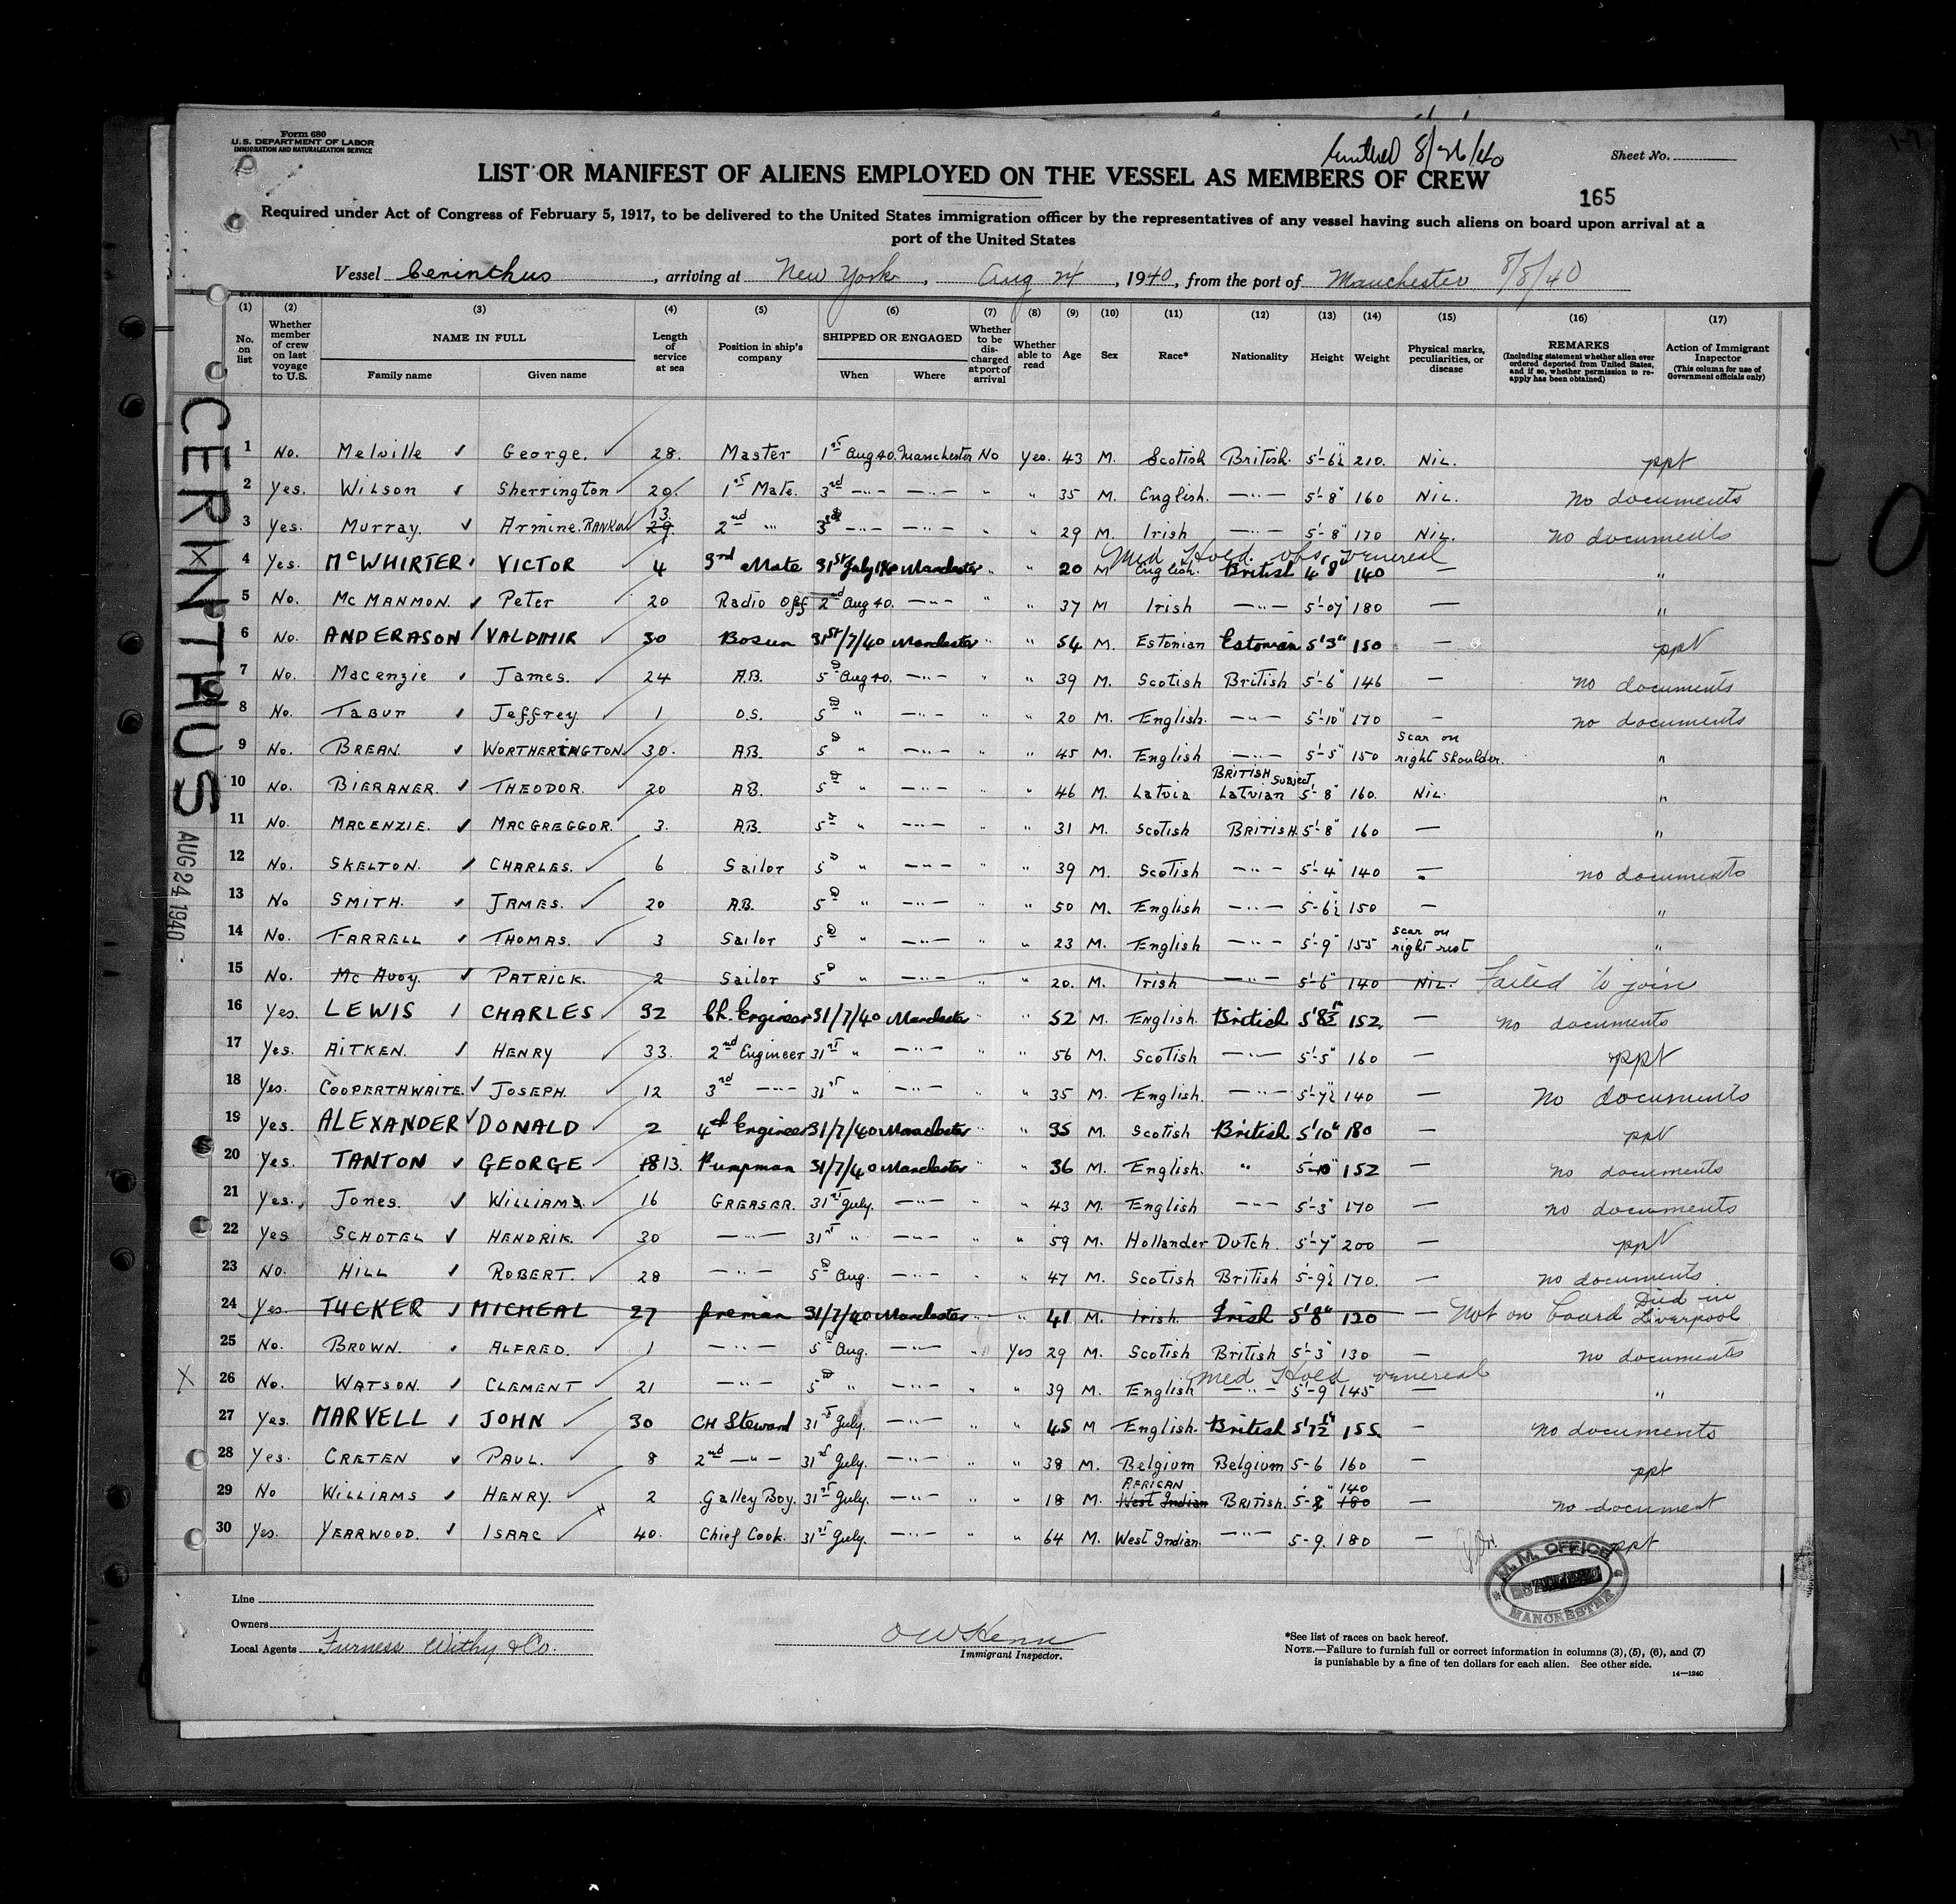 Form 680
U.S. DEPARTMENT OF LABOR
IMMIGRATION AND NATURALIZATION SERVICE
8/26/40
Sheet No.
LIST OR MANIFEST OF ALIENS EMPLOYED ON THE VESSEL AS MEMBERS OF CREW
165
Required under Act of Congress of February 5, 1917, to be delivered to the United States immigration officer by the representatives of any vessel having such aliens on board upon arrival at a
port of the United States
Vessel Cerinthus, arriving at New York, Aug 24, 1940, from the port of Manchester 8/8/40
(1) (2) (3) (4) (5) (6) (7) (8) (9) (10) (11) (12) (13) (14) (15) (16) (17)
No. on list Whether member of crew on last voyage to U.S. NAME IN FULL Family name Given name Length of service at sea Position in ship's company SHIPPED OR ENGAGED When Where Whether to be discharged at port of arrival Whether able to read Age Sex Race* Nationality Height Weight Physical marks, peculiarities, or disease REMARKS (Including statement whether alien ever ordered deported from United States, and if so, whether permission to reapply has been obtained) Action of Immigrant Inspector (This column for use of Government officials only)
CERINTHUS
AUG 24 1940
1 No. Melville George. 28. Master 1st Aug 40. Manchester No Yes. 43 M. Scotish British. 5'-6½ 210. NIL. ppt
2 Yes. Wilson Sherrington 20. 1st Mate. 3rd —"— —"— " " 35 M. English. —"— 5'-8" 160 NIL. No documents
3 Yes. Murray. Armine. RANKIN 13. 29. 2nd " 3rd —"— —"— " " 29 M. Irish —"— 5'-8" 170 NIL. no documents
Med Hold. venereal
4 Yes. McWHIRTER VICTOR 4 3rd Mate 31st July 1940 Manchester " " 20 M English. British 4'8" 140 — "
5 No. McMANMON. Peter 20 Radio Off 2nd Aug 40. —"— " " 37 M Irish —"— 5'-07" 180 — "
6 No. ANDERASON VALDIMIR 30 Bosun 31st/7/40 Manchester " " 54 M. Estonian Estonian 5'3" 150 — ppt
7 No. Macenzie James. 24 A.B. 5th Aug 40. —"— " " 39 M. Scotish British 5'-6" 146 — no documents
8 No. Tabur Jeffrey. 1 O.S. 5th " —"— " " 20 M. English. —"— 5'-10" 170 — no documents
9 No. BREAN. WORTHERINGTON 30. A.B. 5th " —"— " " 45 M. English —"— 5'-5" 150 scar on right shoulder. "
10 No. BIERANER. THEODOR. 20 A.B. 5th " —"— " " 46 M. Latvia BRITISH SUBJECT LATVIAN 5'-8" 160. NIL. "
11 No. MACENZIE. MACGREGGOR. 3. A.B. 5th " —"— " " 31 M. Scotish BRITISH. 5'-8" 160 — "
12 No. SKELTON. CHARLES. 6 Sailor 5th " —"— " " 39 M. Scotish —"— 5'-4" 140 — no documents
13 No SMITH. JAMES. 20 A.B. 5th " —"— " " 50 M. English —"— 5-6½ 150 — "
14 No. FARRELL THOMAS. 3 Sailor 5th " —"— " " 23 M. English —"— 5'-9" 155 scar on right rist "
15 No. Mc Avoy. PATRICK. 2 Sailor 5th " —"— " " 20. M. Irish —"— 5'-6" 140 NIL. Failed to join
16 Yes. LEWIS CHARLES 32 Ch. Engineer 31/7/40 Manchester " " 52 M. English. British 5'8½" 152. — no documents
17 Yes. AITKEN. HENRY 33. 2nd Engineer 31st " —"— " " 56 M. Scotish —"— 5'-5" 160 — ppt
18 Yes. COOPERTHWAITE. JOSEPH. 12 3rd —"— 31st " —"— " " 35 M. English. —"— 5'-7½ 140 — No documents
19 Yes. ALEXANDER DONALD 2 4th Engineer 31/7/40 Manchester " " 35 M. Scotish British 5'10" 180 — ppt
20 Yes. TANTON GEORGE 18 13. Pumpman 31/7/40 Manchester " " 36 M. English. " 5'-10" 152 — no documents
21 Yes. Jones. WILLIAMS. 16 GREASER. 31st July. —"— " " 43 M. English —"— 5'-3" 170 — no documents
22 Yes SCHOTEL HENDRIK. 30 —"— 31st " —"— " " 59 M. Hollander Dutch. 5'-7" 200 — ppt
23 No. HILL ROBERT. 28 —"— 5th Aug. —"— " " 47 M. Scotish British 5'-9½ 170. — no documents.
24 Yes. TUCKER MICHEAL 27 fireman 31/7/40 Manchester " " 41 M. Irish. Irish 5'8" 120 — Not on board Died in Liverpool
25 No. BROWN. ALFRED. 1 —"— 5th Aug. —"— " Yes 29 M. Scotish British 5'-3" 130 — no documents
X Med Hold venereal
26 No. WATSON. CLEMENT 21 —"— 5th " —"— " " 39 M. English —"— 5'-9" 145 — "
27 Yes. MARVELL JOHN 30 CH Steward 31st July. —"— " " 45 M English. British 5'7½" 155. — no documents
28 Yes. CRETEN PAUL. 8 2nd —"— 31st July. —"— " " 38 M. Belgium Belgium 5-6 160 — ppt
29 No WILLIAMS HENRY. 2 Galley Boy. 31st July. —"— " " 18 M. AFRICAN West Indian BRITISH. 5-8" 140 180 — no document
30 Yes. YEARWOOD. ISAAC 40. Chief Cook. 31st July. —"— " " 64 M. West Indian. —"— 5-9. 180 — ppt
M. M. OFFICE
MANCHESTER
Line
Owners
Local Agents Furness Withy & Co.
Immigrant Inspector.
*See list of races on back hereof.
NOTE.—Failure to furnish full or correct information in columns (3), (5), (6), and (7)
is punishable by a fine of ten dollars for each alien. See other side.
14—1240